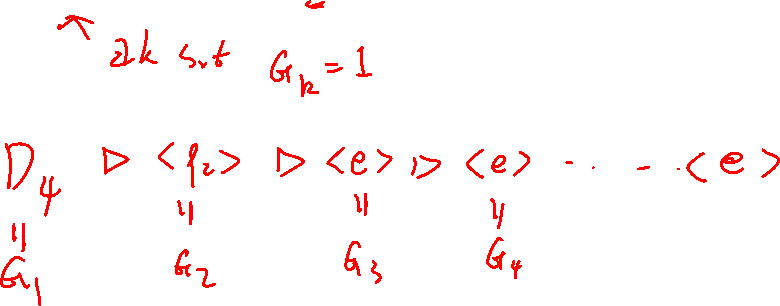 ∃k s.t G_k = 1
D_4 ▷ <ρ_2> ▷ <e> ▷ <e> · · · - · <e>
= G_1 = G_2 = G_3 = G_4